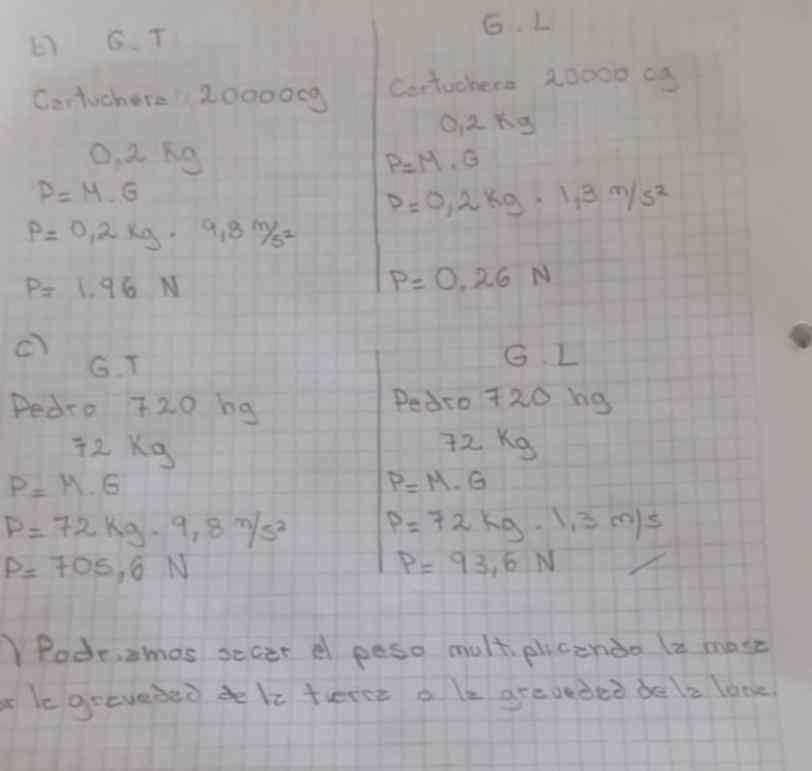 b) G.T
Cartuchera 20000cg
0,2 Kg
P=M.G
P= 0,2 Kg. 9,8 m/s²
P= 1.96 N
G.L
Cartuchera 20000 cg
0,2 Kg
P=M.G
P=0,2 Kg. 1,3 m/s²
P= 0.26 N
c)
G.T
Pedro 720 hg
72 Kg
P= M.G
P= 72 Kg. 9,8 m/s²
P= 705,6 N
G.L
Pedro 720 hg
72 Kg
P=M.G
P= 72 Kg. 1,3 m/s
P= 93,6 N
) Podriamos sacar el peso multiplicando la masa
la graveded de la tierra o la graveded de la